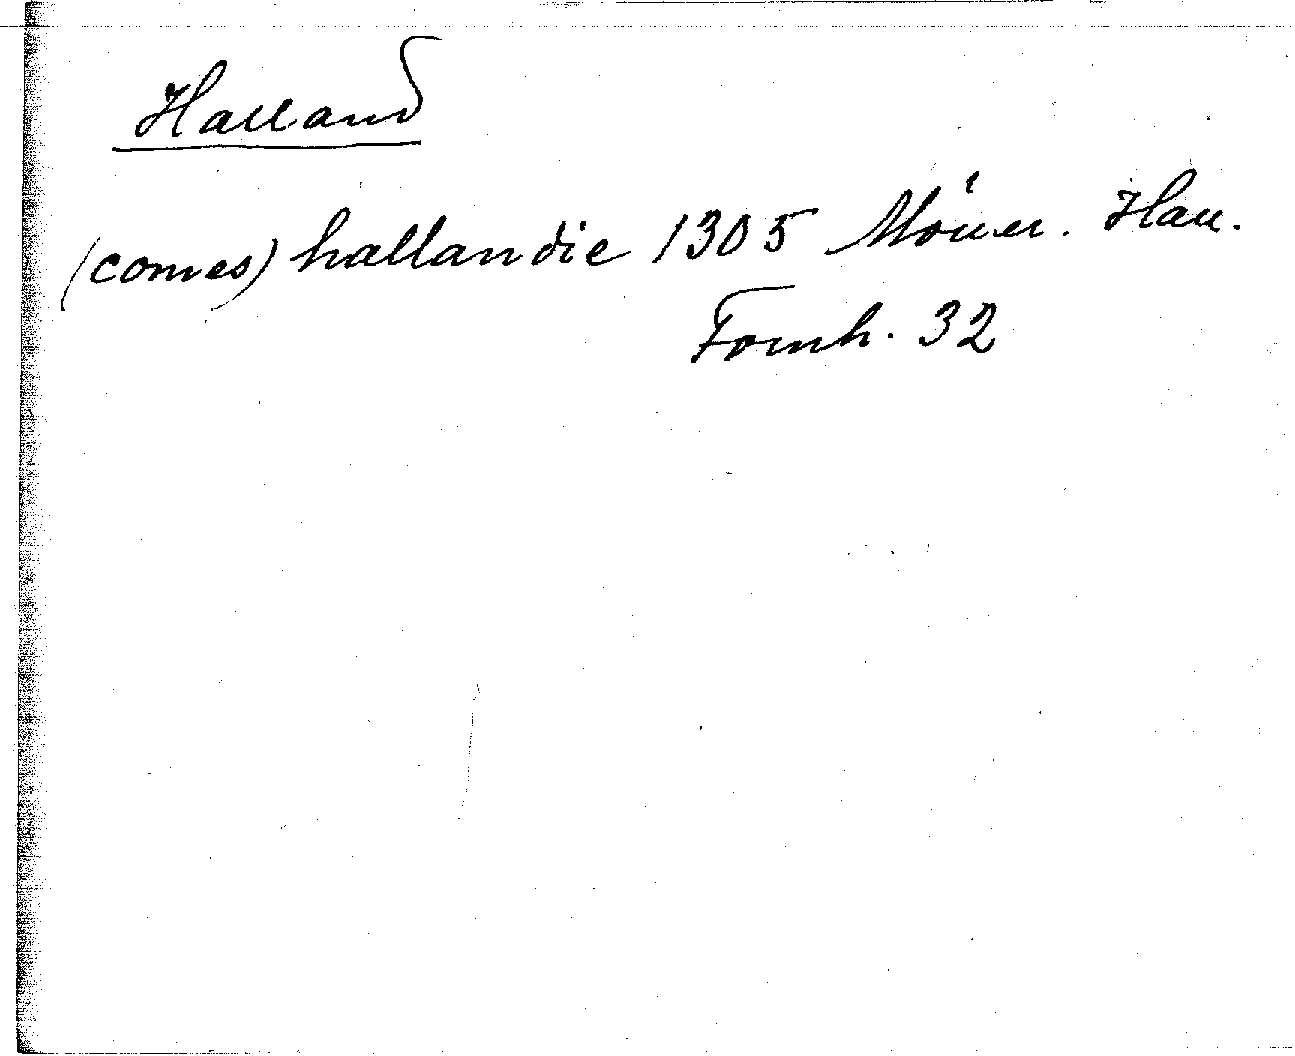 Halland
(comes) hallandie 1305 Möller. Hall.
Fornh. 32